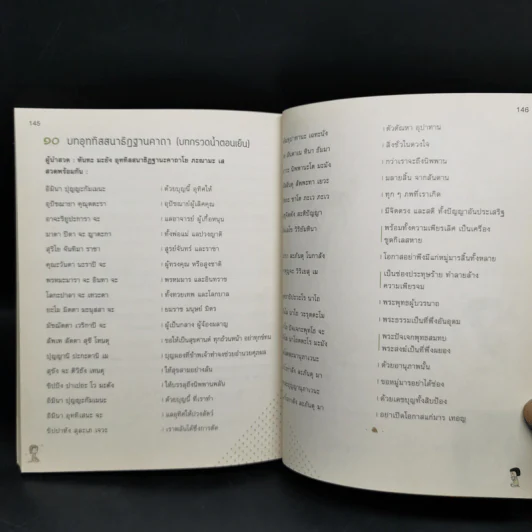 145
๑๐ บทอุททิสสนาธิฏฐานคาถา (บทกรวดน้ำตอนเย็น)
ผู้นำสวด : หันทะ มะยัง อุททิสสนาธิฏฐานะคาถาโย ภะณามะ เส
สวดพร้อมกัน :
อิมินา ปุญญะกัมเมนะ : ด้วยบุญนี้ อุทิศให้
อุปัชฌายา คุณุตตะรา : อุปัชฌาย์ผู้เลิศคุณ
อาจะริยูปะการา จะ : แลอาจารย์ ผู้เกื้อหนุน
มาตา ปิตา จะ ญาตะกา : ทั้งพ่อแม่ แลปวงญาติ
สุริโย จันทิมา ราชา : สูรย์จันทร์ และราชา
คุณะวันตา นะราปิ จะ : ผู้ทรงคุณ หรือสูงชาติ
พรหมะมารา จะ อินทา จะ : พรหมมาร และอินทราช
โลกะปาลา จะ เทวะตา : ทั้งทวยเทพ และโลกบาล
ยะโม มิตตา มะนุสสา จะ : ยมราช มนุษย์ มิตร
มัชฌัตตา เวริกาปิ จะ : ผู้เป็นกลาง ผู้จ้องผลาญ
สัพเพ สัตตา สุขี โหนตุ : ขอให้เป็นสุขศานติ์ ทุกทั่วหน้า อย่าทุกข์ทน
ปุญญานิ ปะกะตานิ เม : บุญผองที่ข้าพเจ้าทำจงช่วยอำนวยศุภผล
สุขัง จะ ติวิธัง เทนตุ : ให้สุขสามอย่างล้น
ขิปปัง ปาเปถะ โว มะตัง : ให้บรรลุถึงนิพพานพลัน
อิมินา ปุญญะกัมเมนะ : ด้วยบุญนี้ ที่เราทำ
อิมินา อุททิเสนะ จะ : แลอุทิศให้ปวงสัตว์
ขิปปาหัง สุละเภ เจวะ : เราพลันได้ซึ่งการตัด
146
: ตัวตัณหา อุปาทาน
: สิ่งชั่วในดวงใจ
: กว่าเราจะถึงนิพพาน
: มลายสิ้น จากสันดาน
: ทุก ๆ ภพที่เราเกิด
: มีจิตตรง และสติ ทั้งปัญญาอันประเสริฐ
พร้อมทั้งความเพียรเลิศ เป็นเครื่อง
ขูดกิเลสหาย
: โอกาสอย่าพึงมีแก่หมู่มารสิ้นทั้งหลาย
เป็นช่องประทุษร้าย ทำลายล้าง
ความเพียรจม
: พระพุทธผู้บวรนาถ
: พระธรรมเป็นที่พึ่งอันอุดม
พระปัจเจกพุทธสมทบ
พระสงฆ์เป็นที่พึ่งผยอง
: ด้วยอานุภาพนั้น
: ขอหมู่มารอย่าได้ช่อง
: ด้วยเดชบุญทั้งสิบป้อง
: อย่าเปิดโอกาสแก่มาร เทอญ